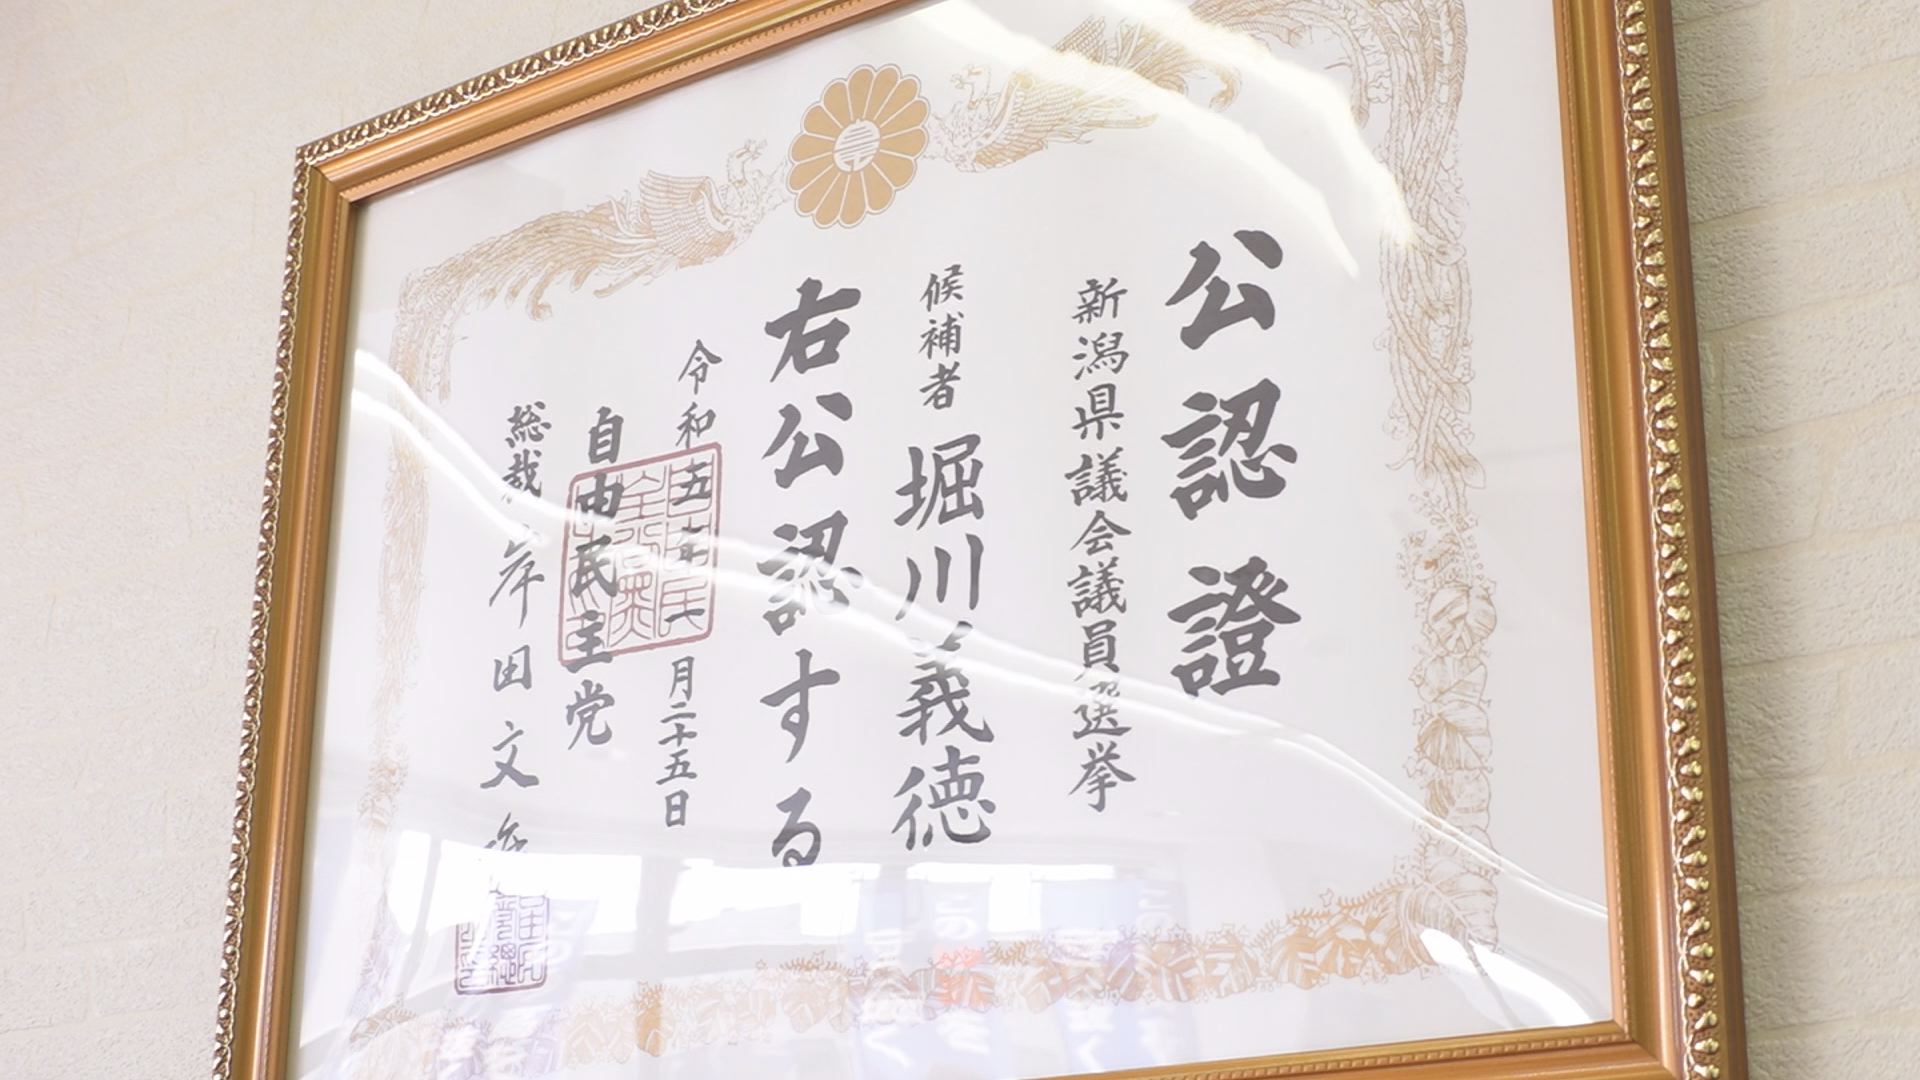 公認證
新潟県議会議員選挙
候補者 堀川義徳
右公認する
令和五年一月二十五日
自由民主党
総裁 岸田文雄